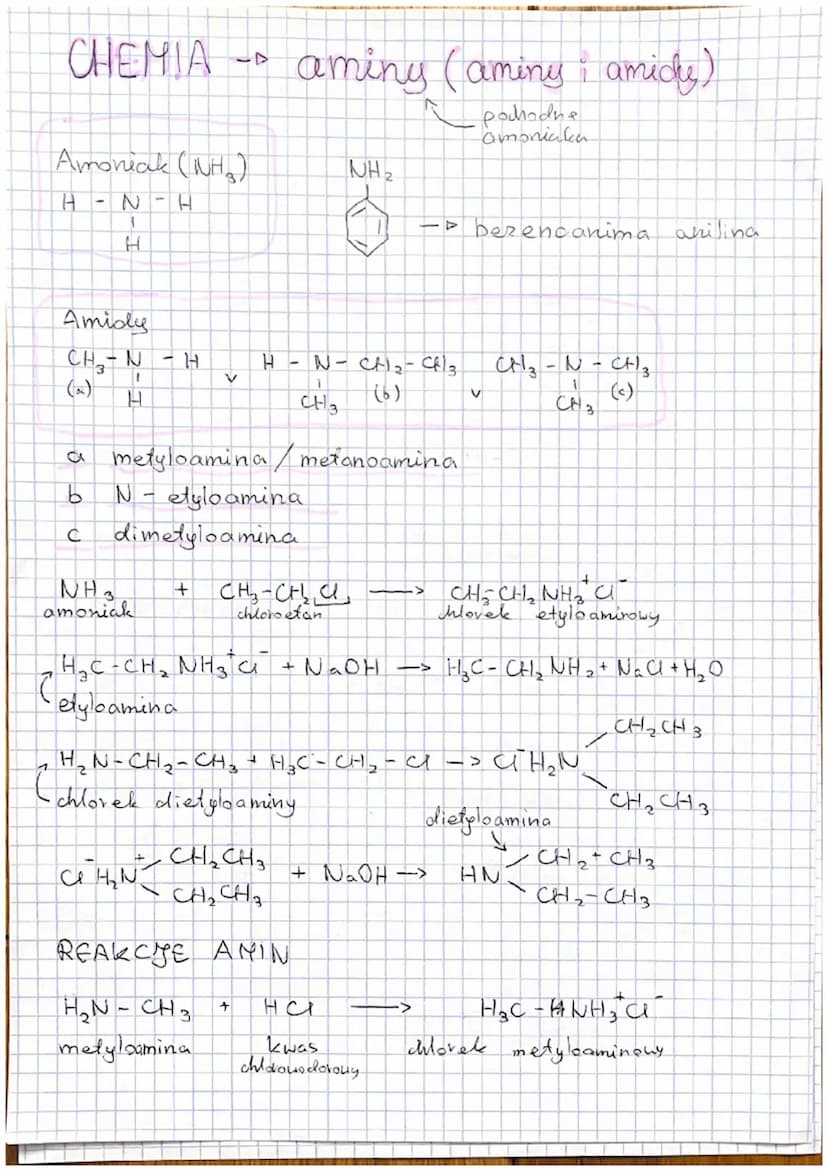 CHEMIA → aminy (aminy i amidy)
pochodne
amoniaku
Amoniak (NH₃)
H - N - H
H
NH₂
→ bezenoanima anilina
Amidy
CH₃ - N - H v H - N - CH₂ - CH₃ v CH₃ - N - CH₃
(a) H CH₃ (b) CH₃ (c)
a metyloamina / metanoamina
b N - etyloamina
c dimetyloamina
NH₃ + CH₃-CH₂Cl → CH₃-CH₂NH₃⁺Cl⁻
amoniak chloroetan chlorek etyloaminowy
H₃C-CH₂NH₃⁺Cl⁻ + NaOH → H₃C-CH₂NH₂ + NaCl + H₂O
etyloamina
CH₂CH₃
H₂N-CH₂-CH₃ + H₃C-CH₂-Cl → Cl⁻H₂N
CH₂CH₃
chlorek dietyloaminy
dietyloamina
CH₂CH₃ CH₂+CH₃
Cl⁻H₂N⁺ + NaOH → HN
CH₂CH₃ CH₂-CH₃
REAKCJE AMIN
H₂N - CH₃ + HCl → H₃C - NH₃⁺Cl⁻
metyloamina kwas chlorek metyloaminowy
chlorowodorowy